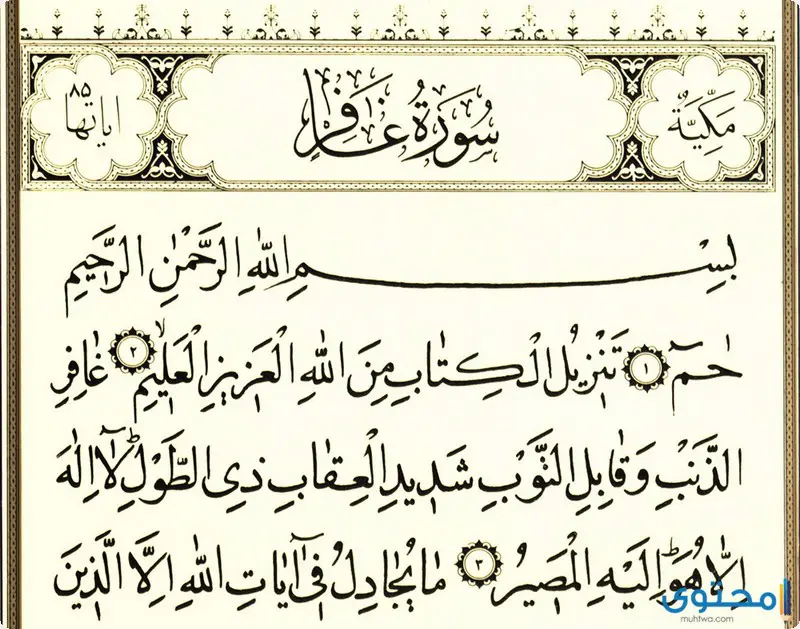 مَكِّيَّةٌ
سُورَةُ غَافِرٍ
اياتها ٨٥
بِسْمِ اللّٰهِ الرَّحْمٰنِ الرَّحٖيمِ
حٰمٓ ١ تَنْزٖيلُ الْكِتَابِ مِنَ اللّٰهِ الْعَزٖيزِ الْعَلٖيمِۙ ٢ غَافِرِ
الذَّنْبِ وَقَابِلِ التَّوْبِ شَدٖيدِ الْعِقَابِ ذِى الطَّوْلِؕ لَٓا اِلٰهَ
اِلَّا هُوَؕ اِلَيْهِ الْمَصٖيرُ ٣ مَا يُجَادِلُ فٖٓى اٰيَاتِ اللّٰهِ اِلَّا الَّذٖينَ
محتوى
muhtwa.com